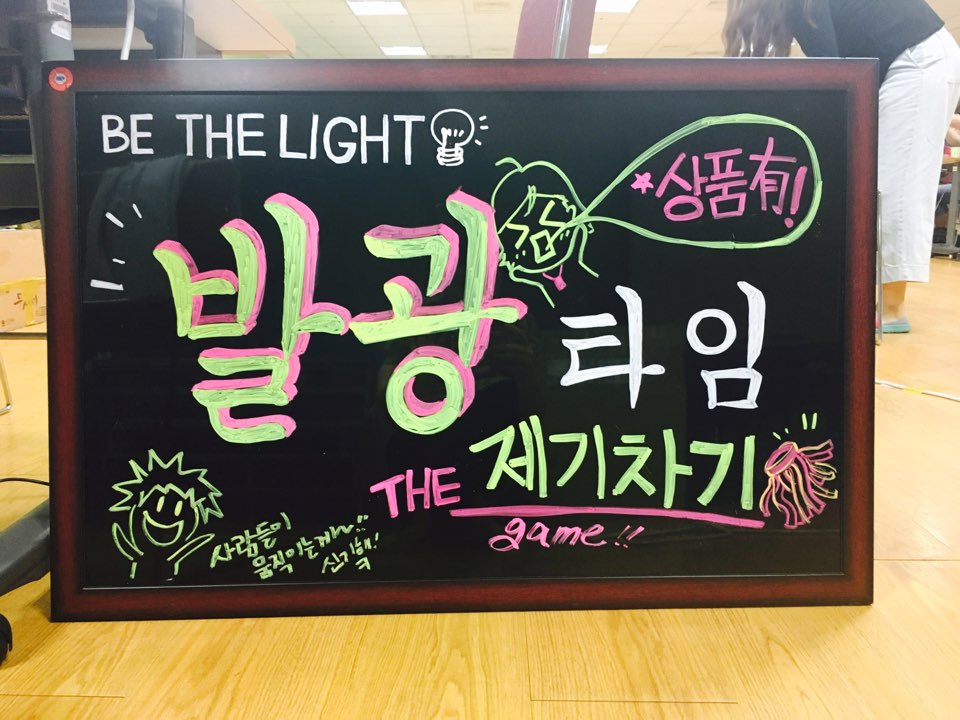 BE THE LIGHT
상품有!
발광
타임
THE 제기차기
game!!
사람들이
움직이는게~!!
신기해!